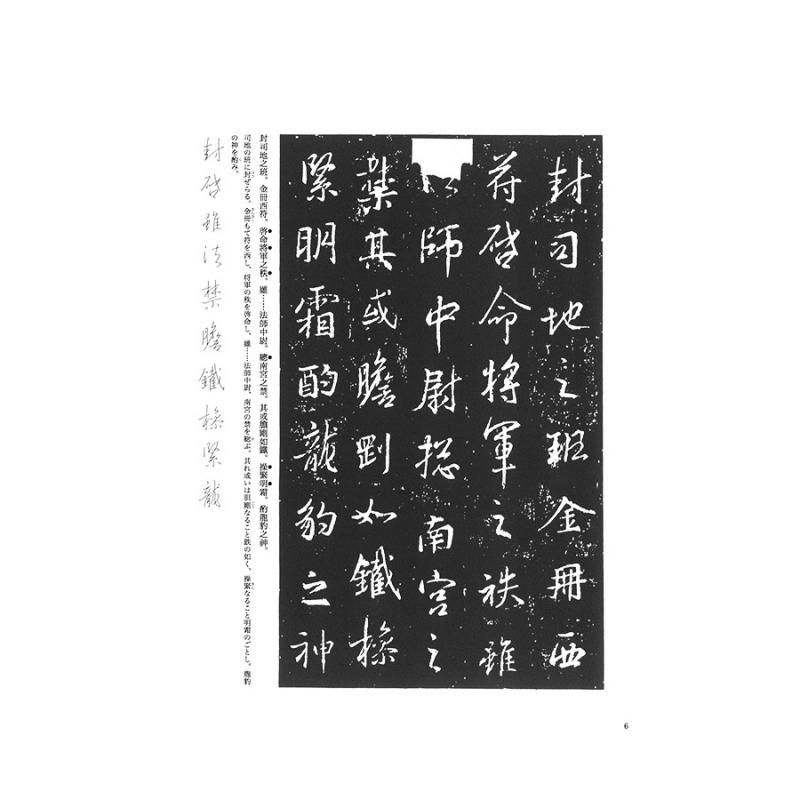 封司地之班金冊西
苻啓命將軍之秩雖
師中尉摠南宮之
禁其或瞻剛如鐵操
緊明霜酌龍豹之神
封司地之班。金冊西符。啓命將軍之秩。雖……法師中尉。總南宮之禁。其或膽剛如鐵。操緊明霜。酌龍豹之神。
司地の班に封ぜらる。金冊もて符を西し、将軍の秩を啓命し、雖……法師中尉、南宮の禁を総ぶ。其れ或いは胆剛なること鉄の如く、操緊なること明霜のごとし。龍豹
の神を酌み、
封啓雖法禁瞻鐵操緊龍
6